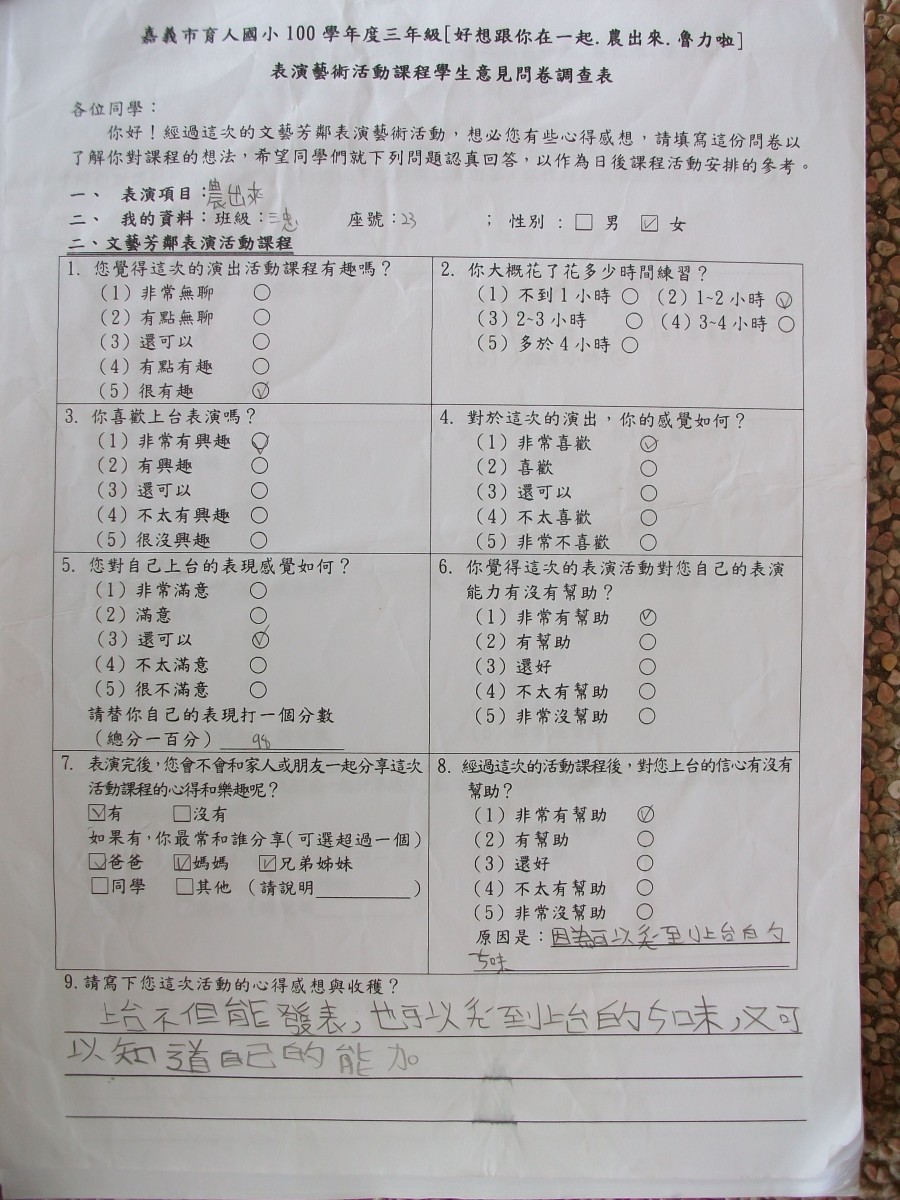 嘉義市育人國小100學年度三年級[好想跟你在一起.農出來.魯力啦]
表演藝術活動課程學生意見問卷調查表
各位同學：
你好！經過這次的文藝芳鄰表演藝術活動，想必您有些心得感想，請填寫這份問卷以
了解你對課程的想法，希望同學們就下列問題認真回答，以作為日後課程活動安排的參考。
一、 表演項目：農出來
二、 我的資料：班級：三忠 座號：23 ；性別：□ 男 ☑ 女
二、文藝芳鄰表演活動課程
1. 您覺得這次的演出活動課程有趣嗎？
(1) 非常無聊 ○
(2) 有點無聊 ○
(3) 還可以 ○
(4) 有點有趣 ○
(5) 很有趣 ✓
2. 你大概花了花多少時間練習？
(1) 不到1小時 ○ (2) 1~2小時 ✓
(3) 2~3小時 ○ (4) 3~4小時 ○
(5) 多於4小時 ○
3. 你喜歡上台表演嗎？
(1) 非常有興趣 ✓
(2) 有興趣 ○
(3) 還可以 ○
(4) 不太有興趣 ○
(5) 很沒興趣 ○
4. 對於這次的演出，你的感覺如何？
(1) 非常喜歡 ✓
(2) 喜歡 ○
(3) 還可以 ○
(4) 不太喜歡 ○
(5) 非常不喜歡 ○
5. 您對自己上台的表現感覺如何？
(1) 非常滿意 ○
(2) 滿意 ○
(3) 還可以 ✓
(4) 不太滿意 ○
(5) 很不滿意 ○
請替你自己的表現打一個分數
(總分一百分) 98
6. 你覺得這次的表演活動對您自己的表演
能力有沒有幫助？
(1) 非常有幫助 ✓
(2) 有幫助 ○
(3) 還好 ○
(4) 不太有幫助 ○
(5) 非常沒幫助 ○
7. 表演完後，您會不會和家人或朋友一起分享這次
活動課程的心得和樂趣呢？
☑有 □沒有
如果有，你最常和誰分享(可選超過一個)
☑爸爸 ☑媽媽 ☑兄弟姊妹
□同學 □其他 (請說明 )
8. 經過這次的活動課程後，對您上台的信心有沒有
幫助？
(1) 非常有幫助 ✓
(2) 有幫助 ○
(3) 還好 ○
(4) 不太有幫助 ○
(5) 非常沒幫助 ○
原因是：因為可以ㄔ到上台白勺
ㄘ味
9.請寫下您這次活動的心得感想與收穫？
上台不但能發表，也可以ㄔ到上台的ㄘ味，又可
以知道自己的能力